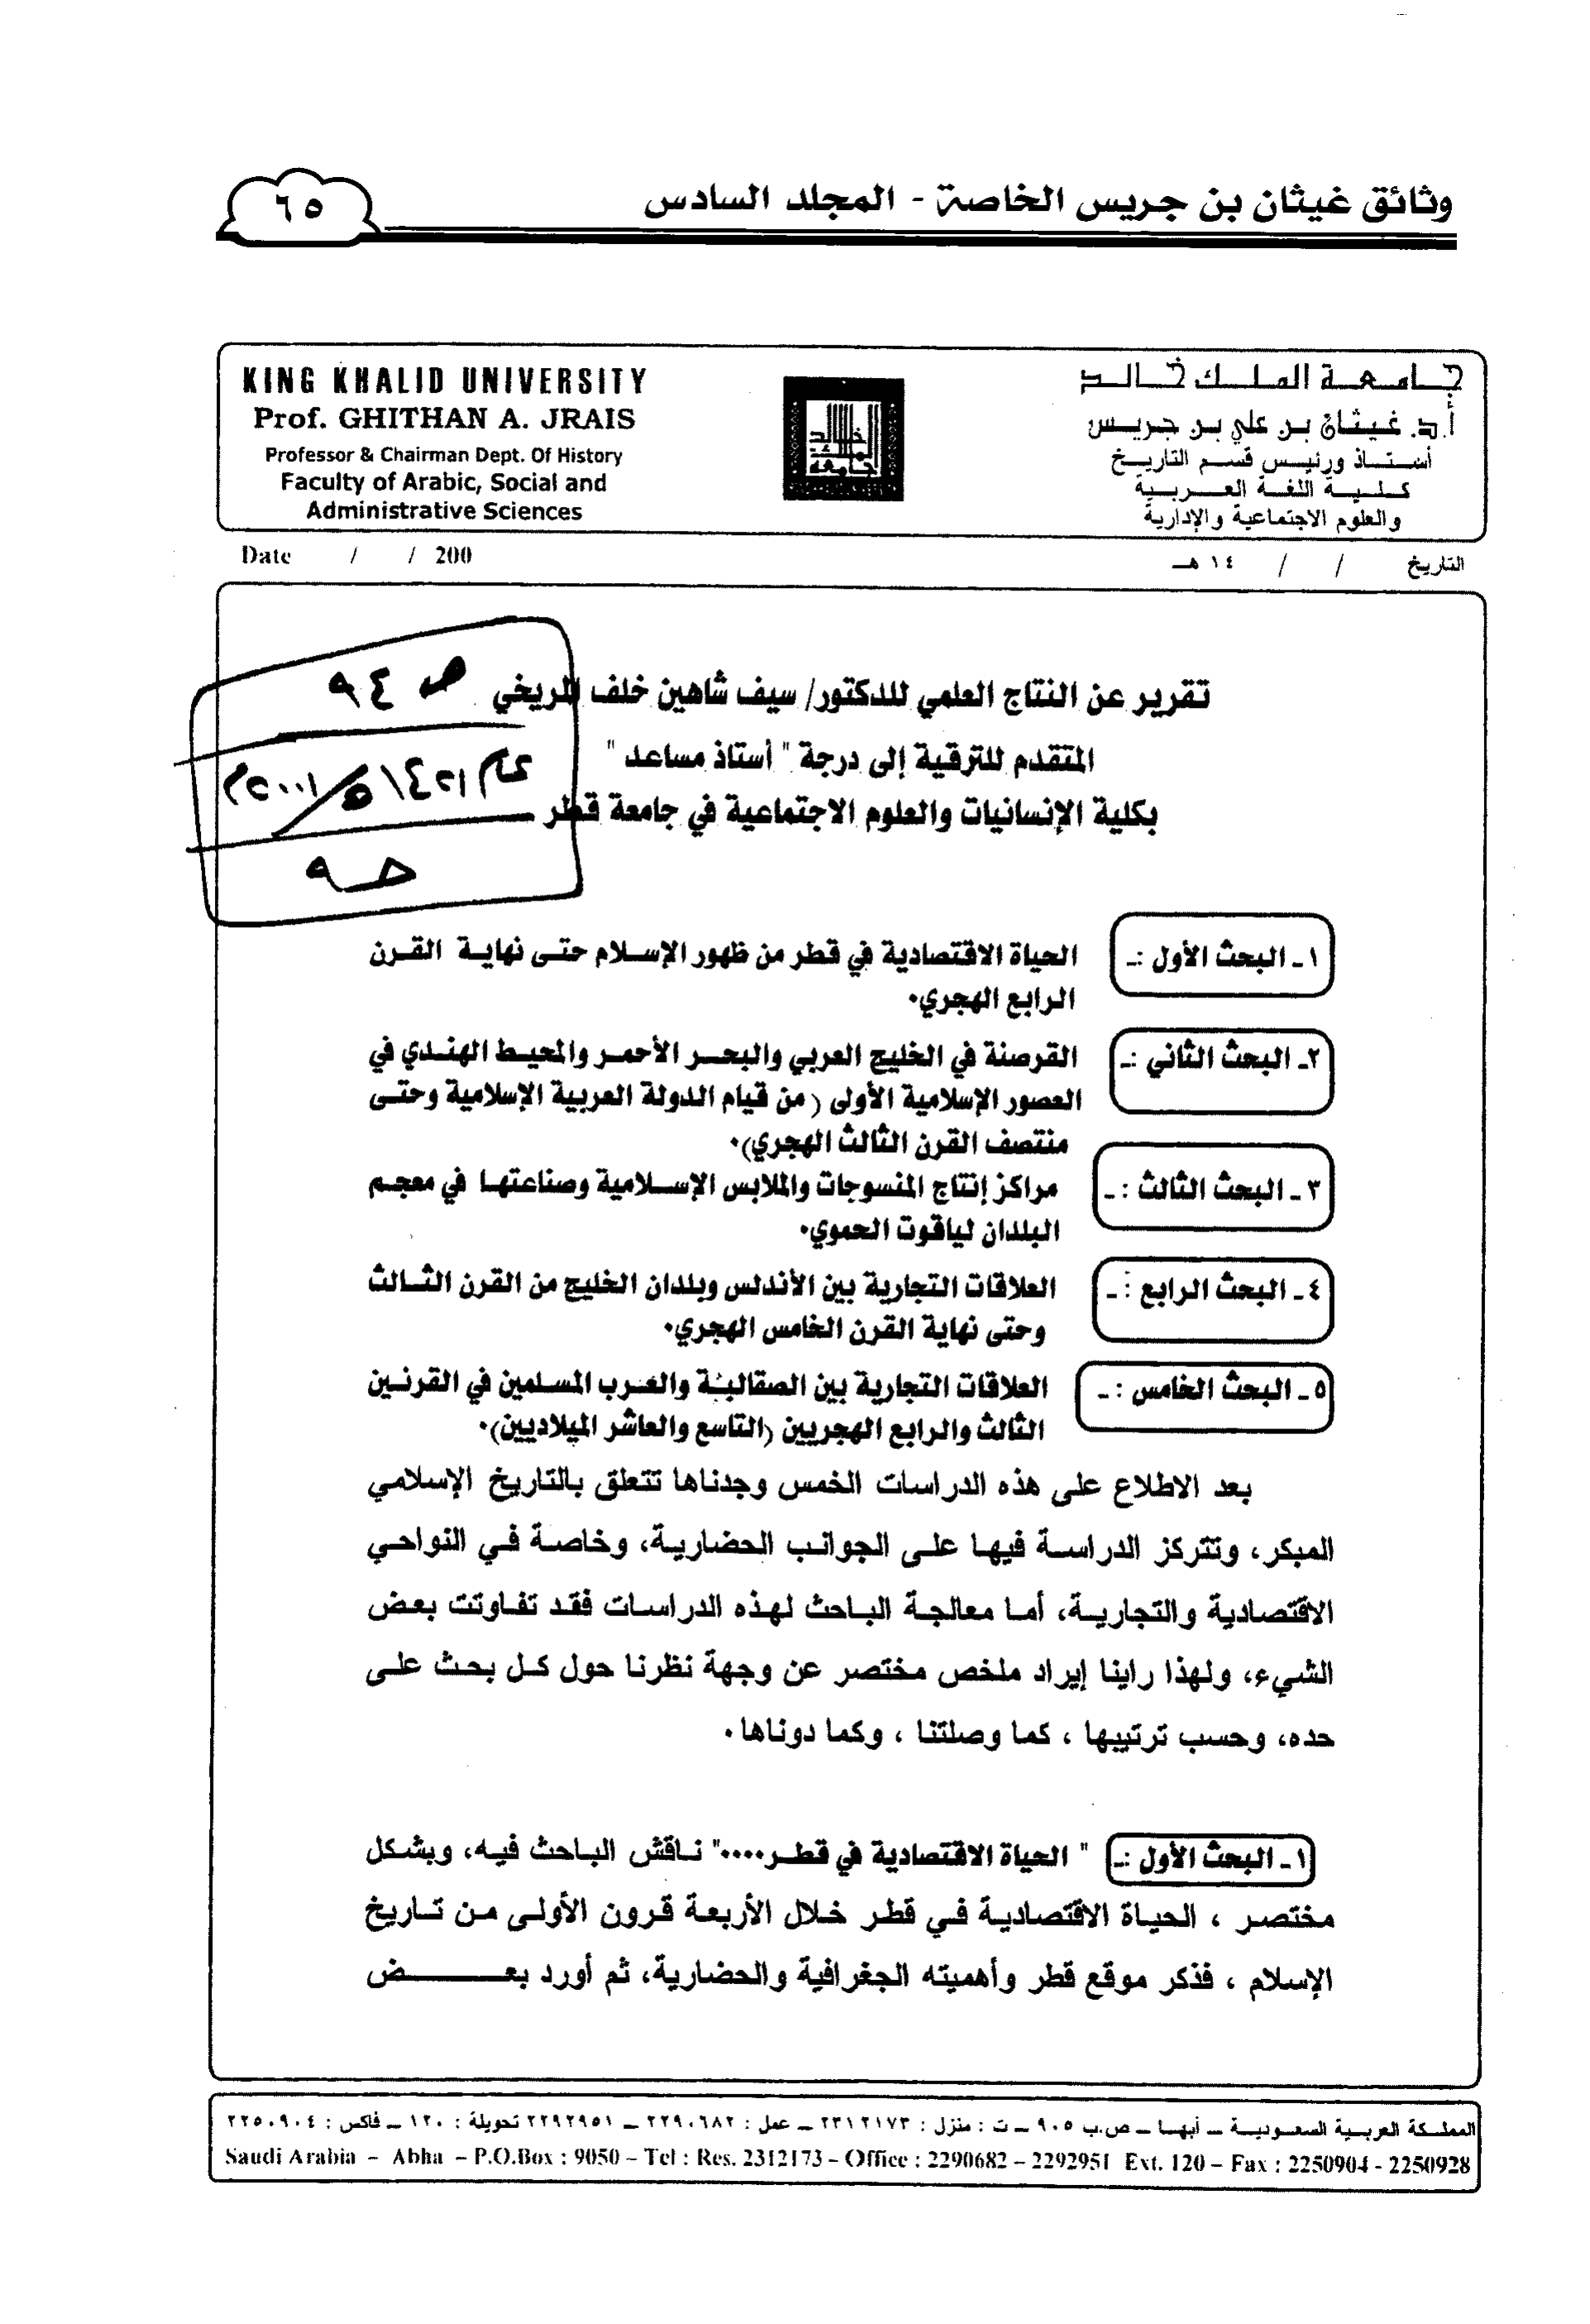 وثائق غيثان بن جريس الخاصة - المجلد السادس
٦٥
KING KHALID UNIVERSITY
Prof. GHITHAN A. JRAIS
Professor & Chairman Dept. Of History
Faculty of Arabic, Social and
Administrative Sciences
جامعة الملك خالد
جامعة الملك خالد
أ.د. غيثان بن علي بن جريس
أستاذ ورئيس قسم التاريخ
كلية اللغة العربية
والعلوم الاجتماعية والإدارية
Date / / 200
التاريخ / / ١٤ هـ
ص ٩٤
١٤٢١هـ/٢٠٠١م
تقرير عن النتاج العلمي للدكتور/ سيف شاهين خلف المريخي
المتقدم للترقية إلى درجة " أستاذ مساعد "
بكلية الإنسانيات والعلوم الاجتماعية في جامعة قطر
١- البحث الأول :- الحياة الاقتصادية في قطر من ظهور الإسلام حتى نهاية القرن
الرابع الهجري.
٢- البحث الثاني :- القرصنة في الخليج العربي والبحر الأحمر والمحيط الهندي في
العصور الإسلامية الأولى ( من قيام الدولة العربية الإسلامية وحتى
منتصف القرن الثالث الهجري).
٣- البحث الثالث :- مراكز إنتاج المنسوجات والملابس الإسلامية وصناعتها في معجم
البلدان لياقوت الحموي.
٤- البحث الرابع :- العلاقات التجارية بين الأندلس وبلدان الخليج من القرن الثالث
وحتى نهاية القرن الخامس الهجري.
٥- البحث الخامس :- العلاقات التجارية بين الصقالبة والعرب المسلمين في القرنين
الثالث والرابع الهجريين (التاسع والعاشر الميلاديين).
بعد الاطلاع على هذه الدراسات الخمس وجدناها تتعلق بالتاريخ الإسلامي
المبكر، وتتركز الدراسة فيها على الجوانب الحضارية، وخاصة في النواحي
الاقتصادية والتجارية، أما معالجة الباحث لهذه الدراسات فقد تفاوتت بعض
الشيء، ولهذا راينا إيراد ملخص مختصر عن وجهة نظرنا حول كل بحث على
حده، وحسب ترتيبها ، كما وصلتنا ، وكما دوناها.
١- البحث الأول :- " الحياة الاقتصادية في قطر...." ناقش الباحث فيه، وبشكل
مختصر ، الحياة الاقتصادية في قطر خلال الأربعة قرون الأولى من تاريخ
الإسلام ، فذكر موقع قطر وأهميته الجغرافية والحضارية، ثم أورد بعض
المملكة العربية السعودية – أبها – ص.ب ٩٠٥ – ت : منزل : ٢٣١٢١٧٣ – عمل : ٢٢٩٠٦٨٢ – ٢٢٩٢٩٥١ تحويلة : ١٢٠ – فاكس : ٢٢٥٠٩٠٤
Saudi Arabia – Abha – P.O.Box : 9050 – Tel : Res. 2312173 – Office : 2290682 – 2292951 Ext. 120 – Fax : 2250904 - 2250928